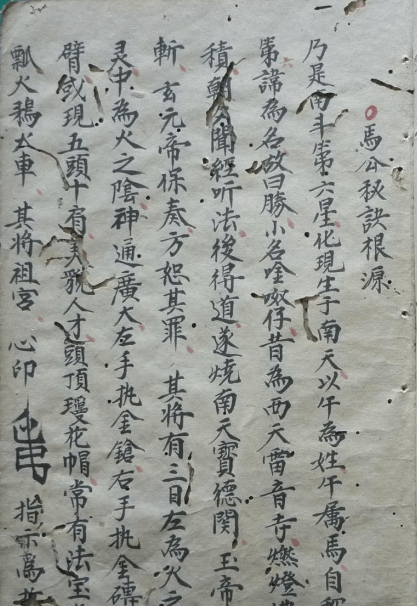 馬公秘訣根源
乃是南斗第六星化現生于南天以午為姓午属馬自
第諱為名故曰勝小名喹𠲿仔昔為西天雷音寺燃燈
積朝夕聞經听法後得道遂燒南天寶德関玉帝
斬玄元帝保奏方恕其罪其将有三目左為火之
灵中為火之陰神通廣大左手执金鎗右手执金磚
臂或現五頭十肩美貌人才頭頂瓊花帽常有法宝
瓢火鴉火車其将祖宮心印指示為